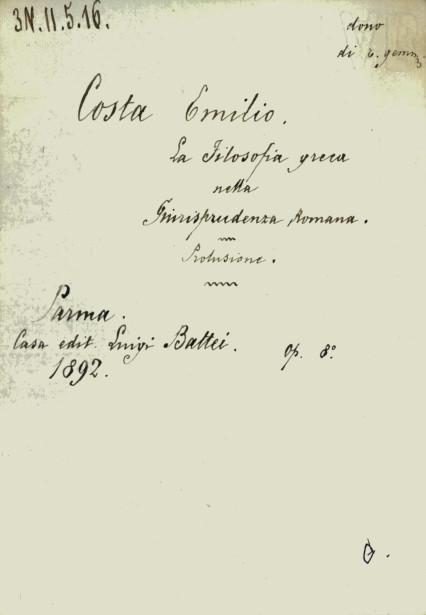 3N.II.5.16.
dono
di
Costa Emilio.
La Filosofia greca
nella
Giurisprudenza Romana.
Prolusione.
Parma.
Casa edit. Luigi Battei.
op. 8°
1892.